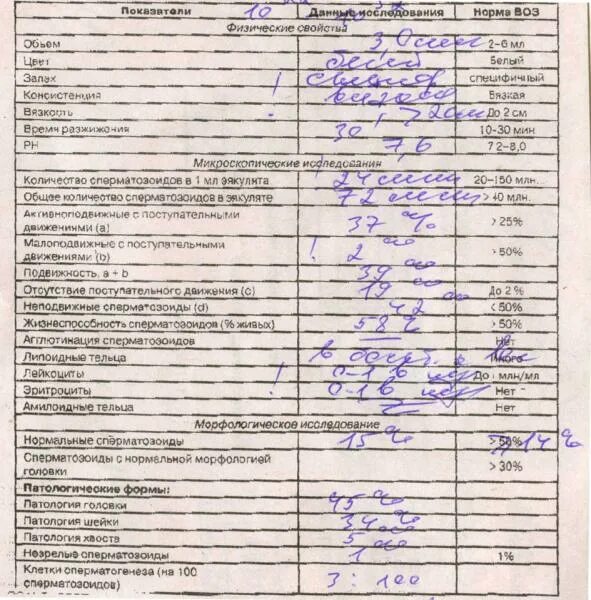 Показатели 10 Данные исследования Норма ВОЗ
Физические свойства
Объем 3,0 мл 2-6 мл
Цвет белый Белый
Запах ! специфичный
Консистенция вязкая Вязкая
Вязкость > 2 см До 2 см
Время разжижения 30' 10-30 мин
PH 7,6 7 2-8,0
Микроскопические исследования
Количество сперматозоидов в 1 мл эякулята 24 млн 20-150 млн..
Общее количество сперматозоидов в эякуляте 72 млн > 40 млн.
Активноподвижные с поступательными
движениями (a) 37 % > 25%
Малоподвижные с поступательными
движениями (b) ! 2 % >50%
Подвижность, a + b 39 %
Отсутствие поступательного движения (c) 19 % До 2 %
Неподвижные сперматозоиды (d) 42 < 50%
Жизнеспособность сперматозоидов (% живых) 58 % > 50%
Агглютинация сперматозоидов — Нет
Липоидные тельца в Много
Лейкоциты 0-1 в До 1 млн/мл
Эритроциты ! 0-1 в Нет
Амилоидные тельца — Нет
Морфологическое исследование
Нормальные сперматозоиды 15 % > 50% 14 %
Сперматозоиды с нормальной морфологией
головки > 30%
Патологические формы:
Патология головки 45 %
Патология шейки 34 %
Патология хвоста 5 %
Незрелые сперматозоиды 1 1%
Клетки сперматогенеза (на 100
сперматозоидов) 3 : 100